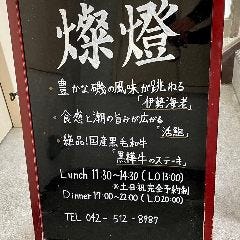 燦燈
・豊かな磯の風味が跳ねる
「伊勢海老」
・食感と潮の旨みが広がる
「活鮑」
・絶品!国産黒毛和牛
「黒樺牛のステーキ」
Lunch 11:30~14:30 (L.O 13:00)
※土日祝 完全予約制
Dinner 17:00~22:00 (L.O 20:00)
TEL 042-512-8987